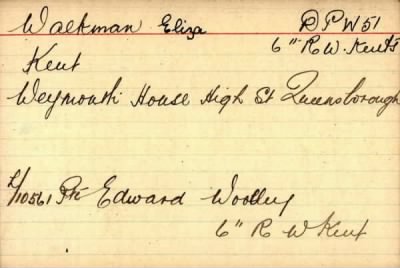 Waltman Eliza DPW51
6" R. W. Kents
Kent
Weymouth House High St Queensborough
L/10561 Pte Edward Woolley
6" R W Kent